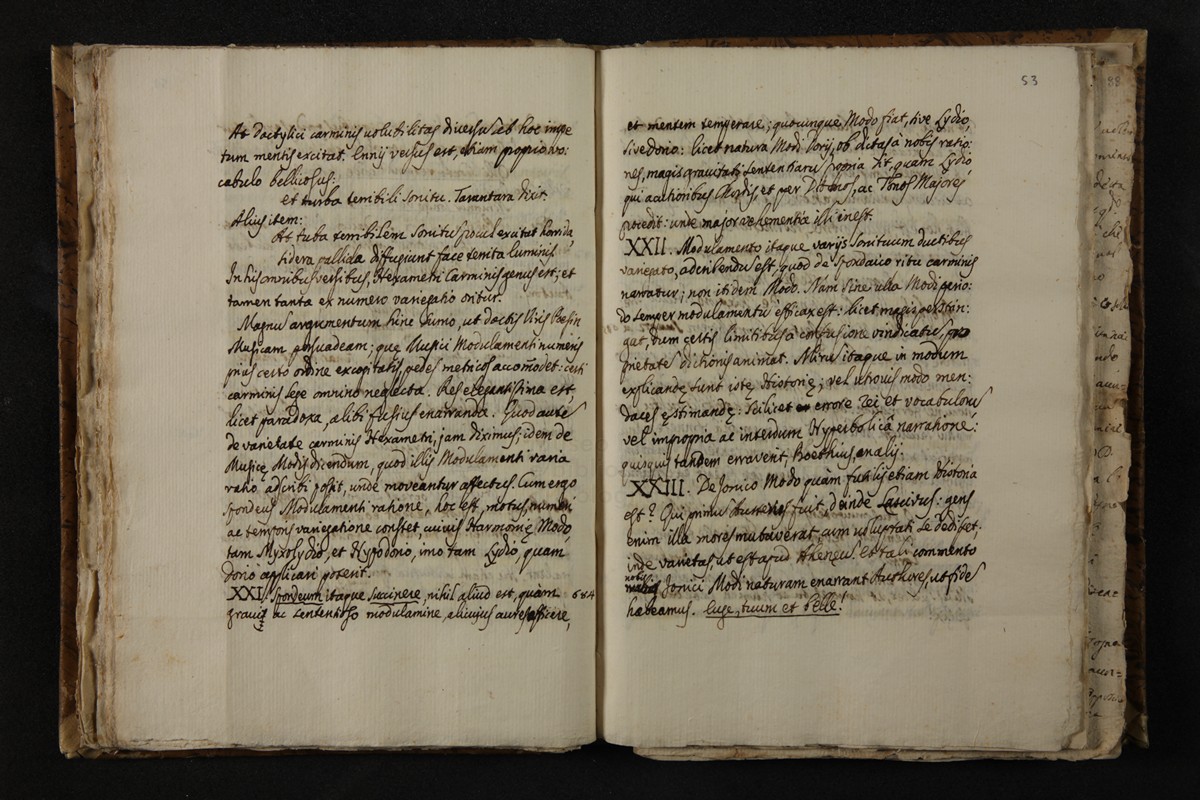 At dactylici carminis volubilitas diversū ab hoc impe
tum mentis excitat. Ennij versus est, etiam proprio vo:
cabulo bellicosus:
et turba terribili sonitu. Tarantara dixit.
Alius item:
At tuba terribilem sonitū procul excitat horrida
sidera pallida diffugiunt face territa luminis
In his omnibus versibus, Hexametri Carminis genus est; et
tamen tanta ex numero variegatio oritur.
Magnū argumentum hinc sumo, ut doctis Viris Poesin
Musicam persuadeam: quę Musici Modulamenti numeris
prius certo ordine excogitatis, pedes metricos accom̄odet: certi
carminis lege omnino neglecta. Res elegantissima est,
licet paradoxa, alibi fusius enarranda. Quod autē
de varietate carminis Hexametri, jam diximus; idem de
Musicę Modis dicendum, quod illis Modulamenti varia
ratio adscribi possit, unde moveantur affectus. Cum ergo
spondeus Modulamenti ratione, hoc est, motus, numeri
ac temporis variegatione constet, cuivis Harmonię Modo
tam Myxolydio, et Hypodorio, imo tam Lydio, quam
dorio applicari poterit.
XXI. Spondeum itaque succinere, nihil aliud est, quàm
gravi ac sententioso modulamine, alicujus aures afficere,
53
et mentem temperare; quocunque Modo fiat, sive Lydio,
sive dorio: licet natura Modi Dorij, ob dictas à nobis ratio:
nes, magis gravitati sententiarū propria sit, quàm Lydio
qui acutioribus Chordis, et per Ditonos, ac Tonos Majores
procedit: unde major vehementia illi inest.
XXII. Modulamento itaque varijs sonituum ductibus
variegato, adscribendū est, quod de spondaico ritu carminis
narratur; non itidem Modo. Nam sine ulla Modi perio:
do semper modulamintū efficax est: licet magis perstrin:
gat, dum certis limitibus à confusione vindicatū, pro
prietate dictionis animat. Aline itaque in modum
explicandę sunt istę Historię; vel utrovis modo men:
daces ęstimandę: scilicet errore rei et vocabulorū
vel impropria ac interdum Hyperbolicâ narratione:
quisquis tandem erraverit, Boethius, an alij.
XXIII. De Jonico Modo quàm futilis etiam Historia
est? Qui primū Austerus fuit, deinde Lascivus: gens
enim illa mores mutaverat, cum voluptati se dedisset;
inde varietas, ut est apud Atheneū. Et tali commento
nobis
Jonici Modi naturam enarrant Authores, ut fidē
habeamus. Euge, tuum et belle!